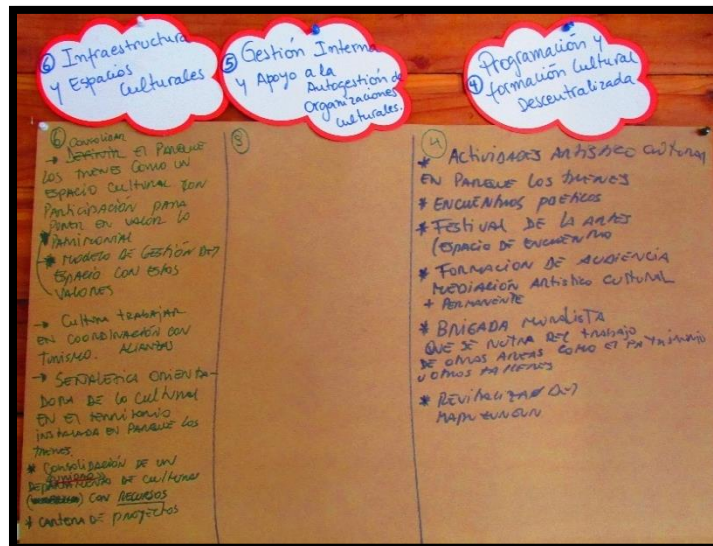 ⑥ Infraestructura
y Espacios
Culturales
⑤ Gestión Interna
y Apoyo a la
Autogestión de
Organizaciones
Culturales.
④ Programación y
formación Cultural
Descentralizada
⑥ Consolidar
→ DEFINIR EL PARQUE
LOS TRENES COMO UN
ESPACIO CULTURAL CON
PARTICIPACIÓN PARA
PONER EN VALOR LO
PATRIMONIAL
* MODELO DE GESTIÓN DEL
ESPACIO CON ESTOS
VALORES
→ Cultura trabajar
EN COORDINACIÓN CON
TURISMO. ALIANZAS
→ SEÑALETICA ORIENTA-
DORA DE LO CULTURAL
EN EL territorio
INSTALADA EN PARQUE LOS
TRENES.
* CONSOLIDACIÓN DE UN
UNIDAD
DEPARTAMENTO DE CULTURA
CON RECURSOS
+ CARTERA DE PROYECTOS
⑤
④
* ACTIVIDADES ARTISTICO CULTURAL
EN PARQUE LOS TRENES
* ENCUENTROS POETICOS
* FESTIVAL DE LA ARTES
(ESPACIO DE ENCUENTRO
* FORMACION DE AUDIENCIA
MEDIACIÓN ARTISTICO CULTURAL
+ PERMANENTE
* BRIGADA MURALISTA
QUE SE NUTRA DEL TRABAJO
DE OTROS AREAS COMO EL PATRIMONIO
U OTROS TALLERES
* REVITALIZAR DEL
MAPUZUNGUN